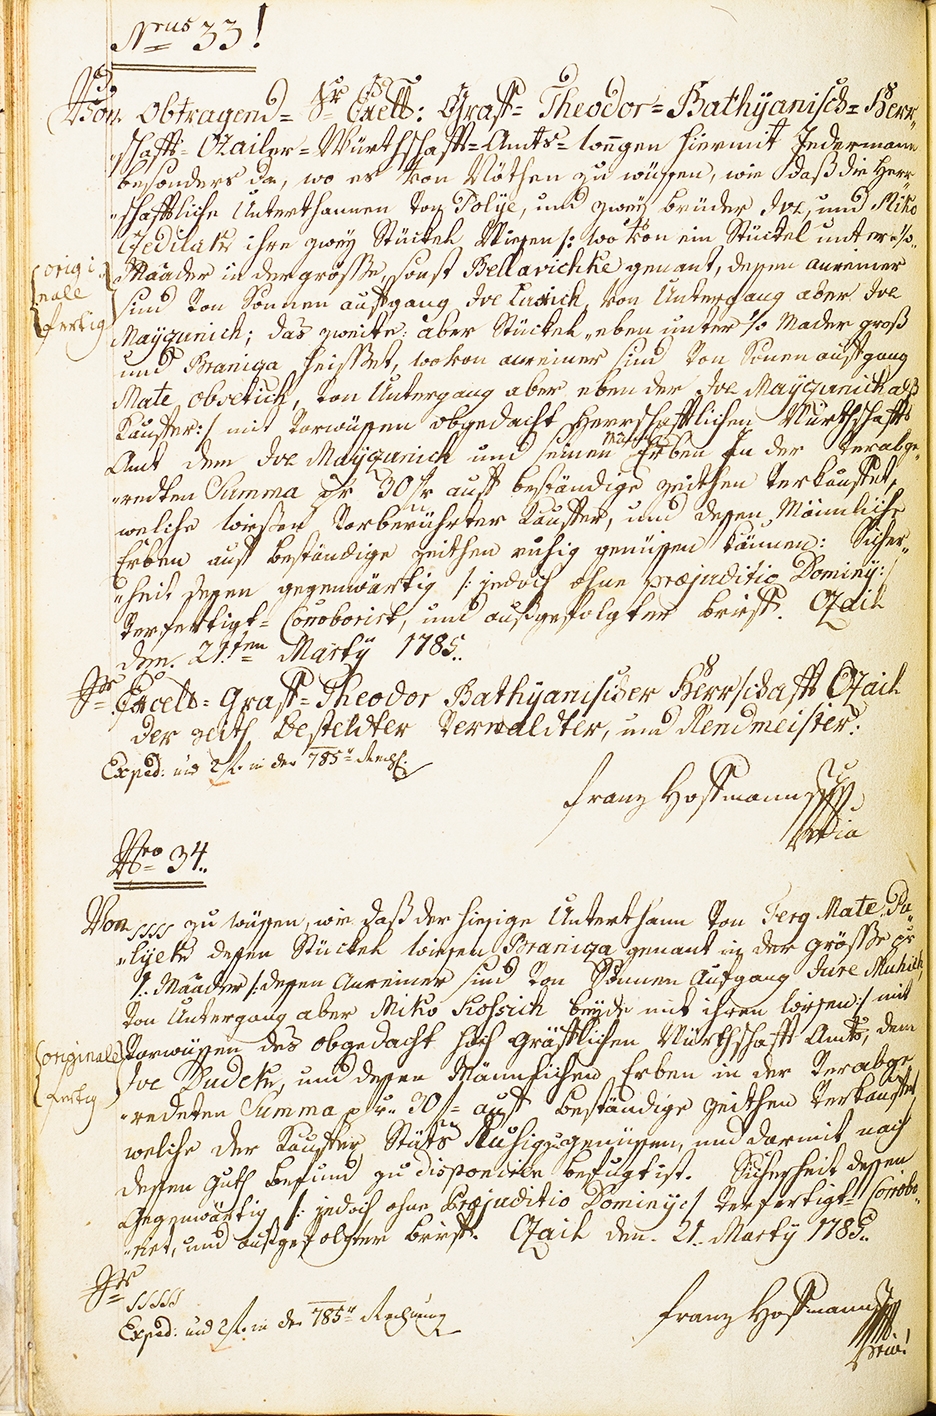 Nrus 33!
Von Obtragend= Sr Excell: Graff= Theodor= Bathyanisch= Herr„
„schafft Czailer= Würthschafft= Amts= wegen hiermit Jedermann
besonders da, wo es von Nöthen zu wüssen, wie daß die Herr„
„schafftliche Unterthannen von Polÿe, und zweÿ brüder Ive, und Miko
ihre zweÿ Stückel Wiesen /: wo von ein Stückel unter
Maader in der grösse, sonst Bellavichke genant, dessen anreiner
sind von Sonnen auffgang Ive, von Untergang aber Ive
Mayzunich; das zweite: aber Stückel „eben unter Mader groß
und Braniga heisset, wovon anreiner sind von Sonen auffgang
Mate, von Untergang aber eben der Ive Mayczunich alß
Kauffer:/ mit vorwüssen obgedacht Herrschafftlichen Würthschaffts
Amt dem Ive Mayzunich und seinen Erben in der verabge„
„redten Summa pr 30 fr auff beständige zeithen verkauffet,
welche wiesen vorberührter Kauffer, und dessen Männliche
Erben auf beständige zeithen ruhig genüssen können: Sicher„
„heit dessen gegenwärtig /: jedoch ohne præjuditio Dominÿ:/
verfertigt= Corroborirt, und außgefolgter briff. Czail
den 21.ten Martÿ 1785.
Sr Excell= Graff= Theodor Bathyanischer Herrschafft Czail
der zeith bestelldter verwaldter, und Rendmeister:
Exped: und 2 f. in der 785er Rechg.
Franz Hoffmann
Nro 34.
Von SSSS zu wüssen, wie daß der hiesige Unterthann von Ferg Mate Pa„
„lÿek dessen Stückel wiesen Braniga genant in der grösse pr
1. Maader /: dessen Anreiner sind von Sonnen Aufgang Jure Muhich
von Untergang aber Miko Kossich beÿde mit ihren wiesen:/ mit
vorwüssen des obgedacht hoch gräfflichen Würthschafft Amts, dem
Ive Dudek, und dessen Männlichen Erben in der verabge„
„redeten Summa pr 30 f= auff beständige zeithen verkauffet,
welche der Kauffer Stäts Ruhig zugenüssen, und darmit nach
dessen guth befund zu disponiren befugt ist. Sicherheit dessen
Gegenwärtig /: jedoch ohne Præjuditio Dominÿ:/ verfertigt= Corrobo„
„rirt, und außgefolgter briff. Czail den 21. Martÿ 1785.
Sr
SSSSS
Exped: und 2 f. in der 785er Rechnung
Franz Hoffmann
{origi
nale
fertig}
{originale
fertig}